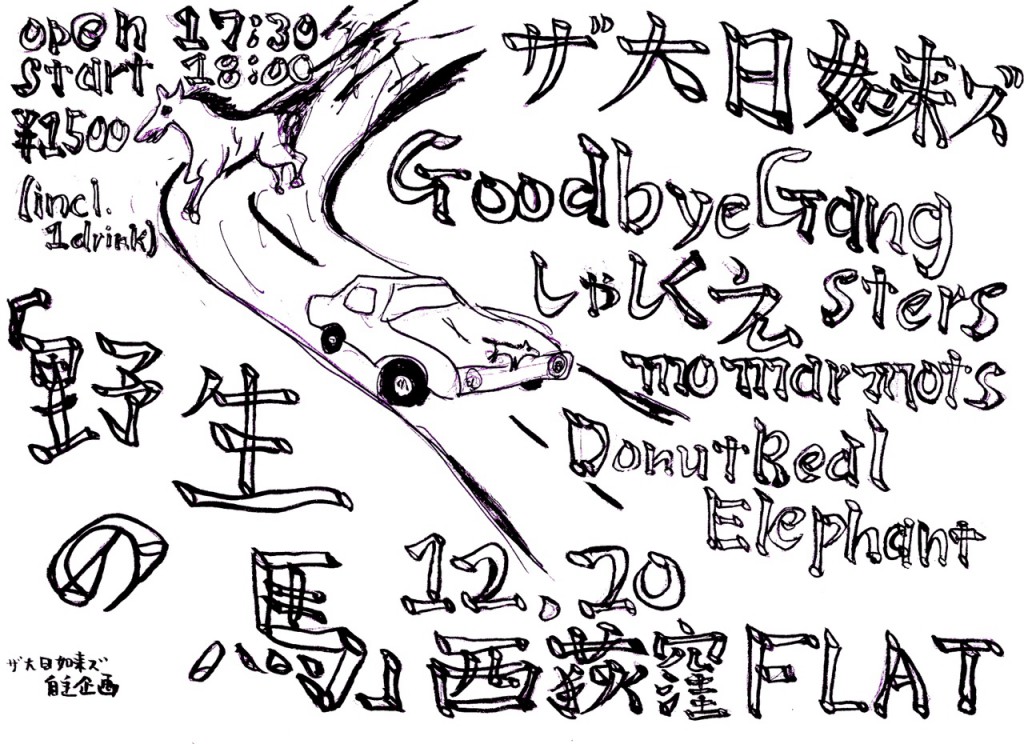 open 17:30
start 18:00
¥1500
(incl.
1drink)
ザ大日如来ズ
GoodbyeGang
しゃしくえ sters
momarmots
DonutReal
Elephant
「野生
の馬」
12.20
西荻窪FLAT
ザ大日如来ズ
自主企画